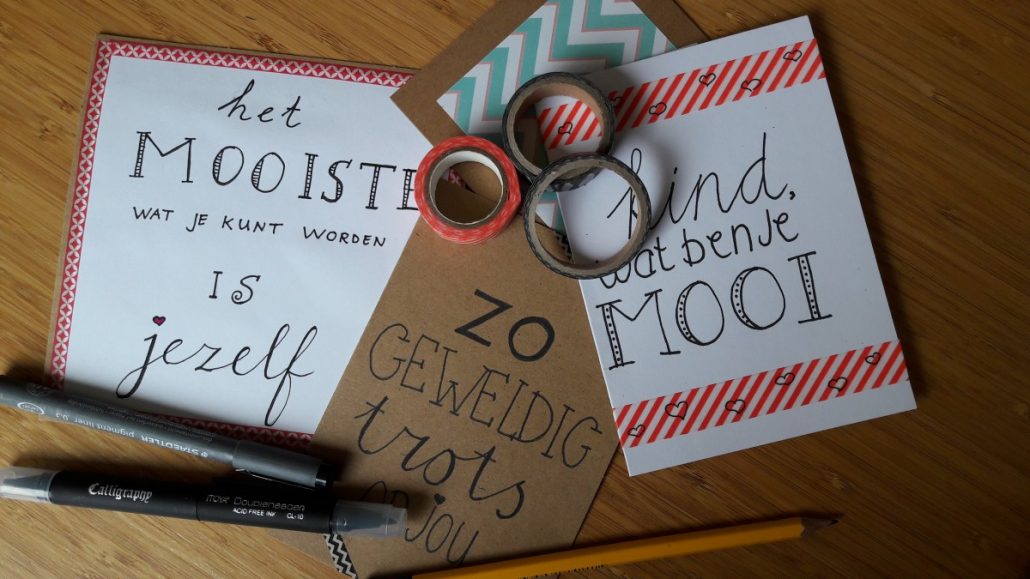 het
MOOISTE
WAT JE KUNT WORDEN
IS
jezelf
ZO
GEWELDIG
trots
OP JOU
kind,
wat ben je
MOOI
STAEDTLER pigment liner 0.3
Calligraphy
ITOYA Doubleheader
ACID FREE INK CL-10